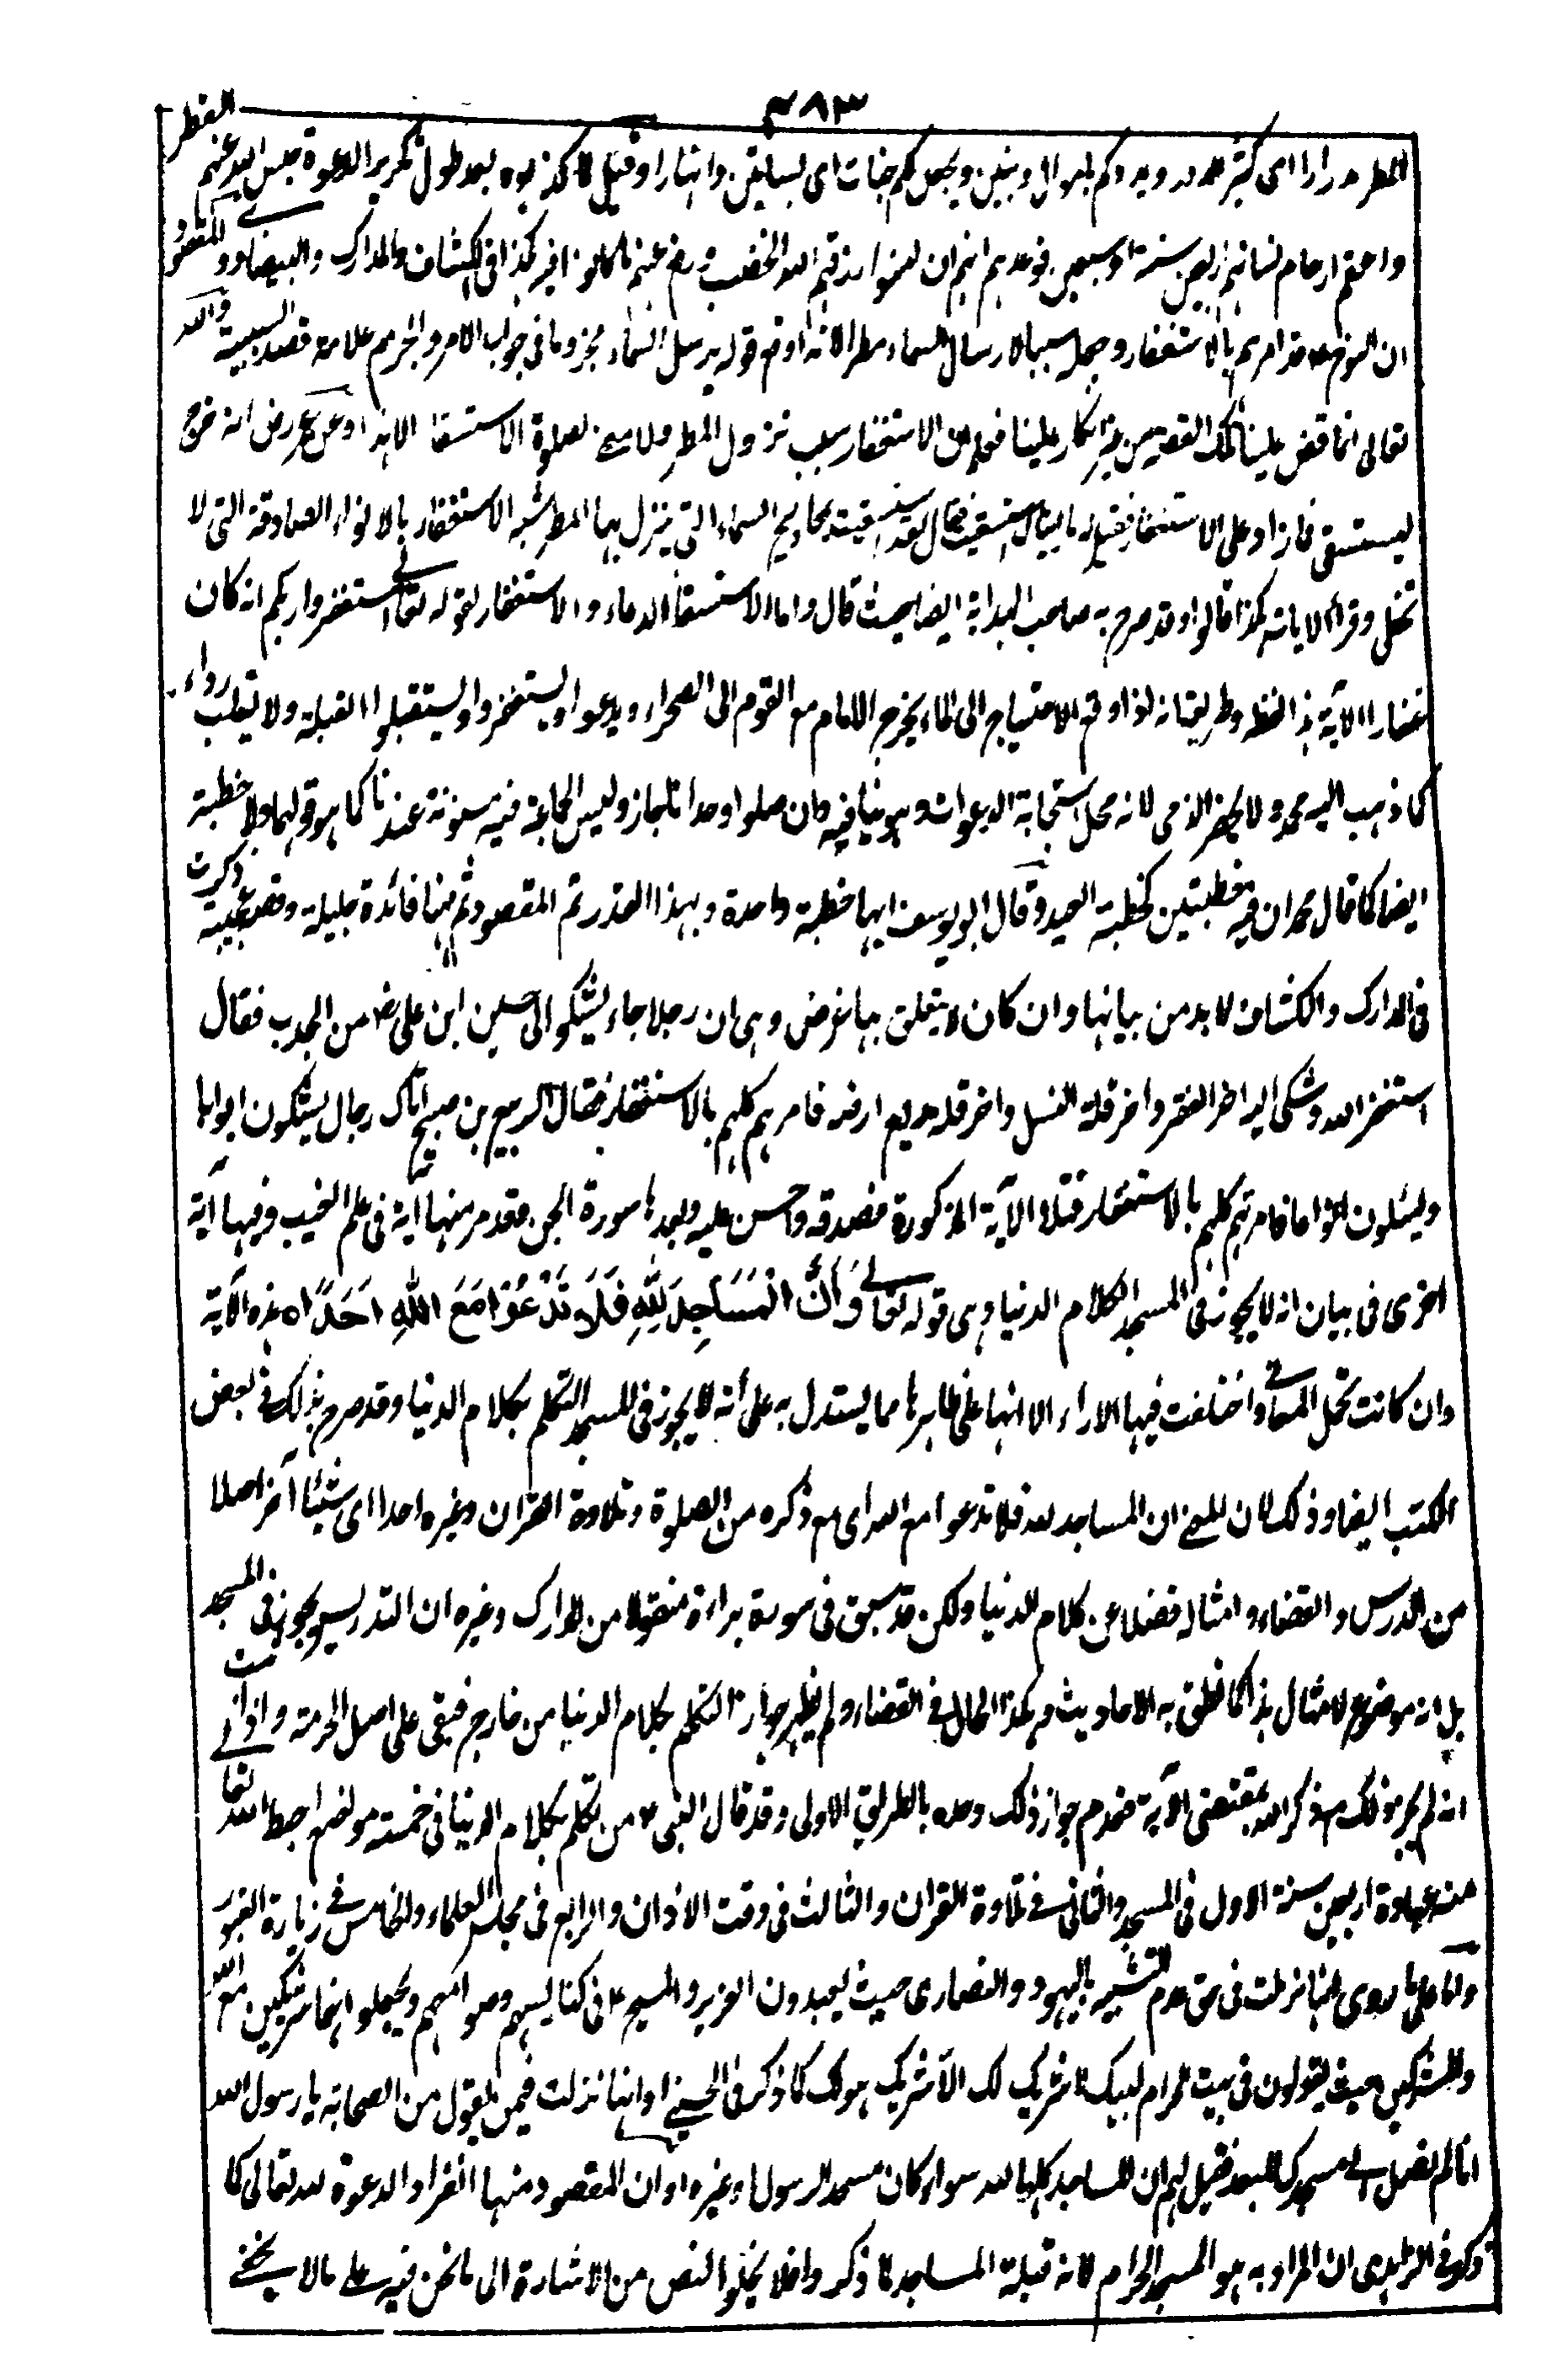 ٣٨٣
المطر مدرارا اى كثير الدرور ويمددكم باموال وبنين ويجعل لكم جنات اى بساتين وانهارا وقيل لما كذبوه بعد طول تكرير الدعوة حبس الله عنهم القطر
واعقم ارحام نسائهم اربعين سنة او سبعين فوعدهم انهم ان آمنوا رزقهم الله الخصب ورفع عنهم ما كانوا فيه كذا فى الكشاف والمدارك والبيضاوى والمقصود
ان النوح ع قد امرهم بالاستغفار وجعله سببا لارسال السماء مطرا لانه اوقع قوله يرسل السماء مجزوما فى جواب الامر والجزم علامة قصد السببية والله
تعالى انما قص علينا تلك القصة من غير انكار علينا فعلم ان الاستغفار سبب نزول المطر ولا معنى لصلوة الاستسقاء الا هذا وعن عمر رض انه خرج
ليستسقى فما زاد على الاستغفار فقيل له ما رأيناك استسقيت فقال لقد استسقيت بمجاديح السماء التى ينزل بها المطر شبه الاستغفار بالانواء الصادقة التى لا
تخطى وقرأ الايات هكذا قالوا وقد صرح به صاحب الهداية ايضا حيث قال وانما الاستسقاء الدعاء والاستغفار لقوله تعالى استغفروا ربكم انه كان
غفارا الآية هذا لفظه وطريقتانه اذا وقع الاحتياج الى الماء يخرج الامام مع القوم الى الصحراء ويدعوا ويستغفروا ويستقبلوا القبلة ولا يقلب رداءه
كما ذهب اليه محمد ولا يحضر الذمى لانه محل استجابة الدعوات وهو ينافيه وان صلوا وحدانا جاز وليس الجماعة فيه مسنونة عندنا كما هو قولهما ولا خطبة
ايضا كما قال محمد ان فيه خطبتين كخطبة العيد وقال ابو يوسف انها خطبة واحدة وبهذا القدر تم المقصود ثم ههنا فائدة جليلة وقصة عجيبة ذكرت
فى المدارك والكشاف لا بد من بيانها وان كان لا يتعلق بها غرض وهى ان رجلا جاء يشكو الى حسين ابن على رض من الجدب فقال
استغفر الله وشكى اليه آخر الفقر وآخر قلة النسل وآخر قلة ريع ارضه فامرهم كلهم بالاستغفار فقال الربيع بن صبيح اتاك رجال يشكون ابوابا
ويسئلون انواعا فامرتهم كلهم بالاستغفار فتلا الآية المذكورة فصدقه واحسن عليه وبعدها سورة الجن فقد مر منها آية فى علم الغيب وفيها آية
اخرى فى بيان انه لا يجوز فى المسجد كلام الدنيا وهى قوله تعالى وَاَنَّ الْمَسَاجِدَ لِلّٰهِ فَلَا تَدْعُوْا مَعَ اللّٰهِ اَحَدًا ه هذه الآية
وان كانت تحتمل المعانى واختلفت فيها الآراء الا انها على ظاهرها مما يستدل به على انه لا يجوز فى المسجد التكلم بكلام الدنيا وقد صرح بذلك فى بعض
الكتب ايضا وذلك لان المعنى ان المساجد لله فلا تدعوا مع الله اى مع ذكره من الصلوة وتلاوة القران وغيره احدا اى شيئا آخر اصلا
من الدرس والقضاء وامثاله فضلا عن كلام الدنيا ولكن قد سبق فى سورة براءة منقولا من المدارك وغيره ان التدريس يجوز فى المسجد
بل انه موضوع لامثال هذا كما نطق به الاحاديث وهكذا الحال فى القضاء ولم يظهر جواز التكلم بكلام الدنيا من خارج فبقى على اصل الحرمة واذا ثبت
انه لم يجز ذلك مع ذكر الله بمقتضى الآية فعدم جواز ذلك وحده بالطريق الاولى وقد قال النبى ع من تكلم بكلام الدنيا فى خمسة مواضع احبط الله تعالى
منه عبادة اربعين سنة الاول فى المسجد والثانى فى تلاوة القران والثالث فى وقت الاذان والرابع فى مجلس العلماء والخامس فى زيارة القبور
واما على ما روى انها نزلت فى حق عدم التشبه باليهود والنصارى حيث يعبدون العزير والمسيح ع فى كنايسهم وصوامعهم ويجعلوانهما شريكين مع الله
والمشركين حيث يقولون فى بيت الحرام لبيك لا شريك لك الا شريك هو لك كما ذكر فى الحسينى او انها نزلت فيمن يقول من الصحابة يا رسول الله
انا لم نصل الى مسجدك للبعد فقيل لهم ان المساجد كلها لله سواء كان مسجد الرسول او غيره او ان المقصود منها انفراد الدعوة لله تعالى كما
ذكره فى الزاهدى ان المراد به هو المسجد الحرام لانه قبلة المساجد كما ذكر وا فلا يخلو النص من الاشارة الى ما نحن فيه على ما لا يخفى